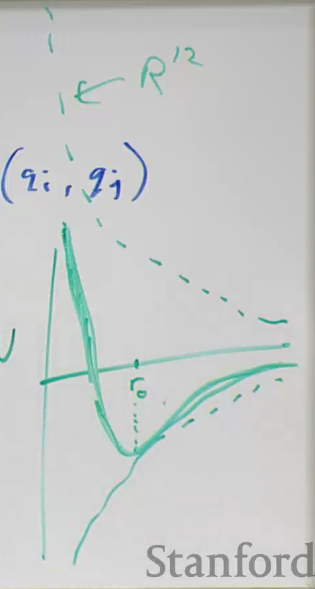 ← R^12
(q_i, q_j)
U
r_0
Stanford